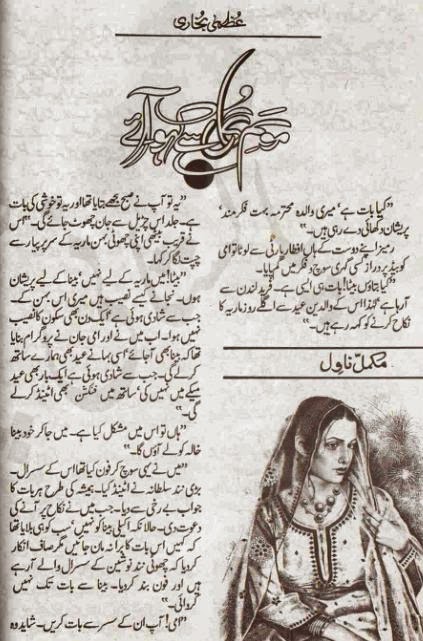 عظمیٰ بخاری
موسم گل سے کہو آئے
”کیا بات ہے‘ میری والدہ محترمہ بہت فکر مند‘
پریشان دکھائی دے رہی ہیں۔“
رمیز اپنے دوست کے ہاں افطار پارٹی سے لوٹا تو امی
کو بیڈ پر دراز کسی گہری سوچ و فکر میں گم پایا۔
”کیا بتاؤں بیٹا! بات ہی ایسی ہے۔ فرید لندن سے
آ رہا ہے لہٰذا اس کے والدین عید سے اگلے روز ماریہ کا
نکاح کرنے کو کہہ رہے ہیں۔“
مکمل ناول
”یہ تو آپ نے صبح مجھے بتایا تھا اور یہ تو خوشی کی بات
ہے۔ جلد اس چڑیل سے جان چھوٹ جائے گی۔“ اس
نے قریب بیٹھی اپنی چھوٹی بہن ماریہ کے سر پر پیار سے
چپت لگا کر کہا۔
”بیٹا! میں ماریہ کے لیے نہیں‘ بینا کے لیے پریشان
ہوں۔ نجانے کیسے نصیب ہیں میری اس بہن کے۔
جب سے شادی ہوئی ہے‘ ایک دن بھی سکون کا نصیب
نہیں ہوا۔ اب میں نے اور امی جان نے پروگرام بنایا
تھا کہ بینا بھی آ جائے‘ اسی بہانے عید بھی ہمارے ساتھ
کر لے گی۔ جب سے شادی ہوئی ہے ایک بار بھی عید
میکے میں نہیں کی‘ ساتھ میں فنکشن بھی اٹینڈ کر لے
گی۔“
”ہاں تو اس میں مشکل کیا ہے۔ میں جا کر خود بینا
خالہ کو لے آؤں گا۔“
”میں نے یہی سوچ کر فون کیا تھا اس کے سسرال۔
بڑی نند سلطانہ نے اٹینڈ کیا۔ ہمیشہ کی طرح ہر بات کا
جواب بے رخی سے دیا۔ جب میں نے نکاح پر آنے کی
دعوت دی۔ حالانکہ اکیلی بینا کو نہیں‘ سب کو ہی بلایا تھا
کہ کہیں اس بات کا برا نہ مان جائیں مگر صاف انکار
کر دیا کہ چھوٹی نند نوشین کے سسرال والے آ رہے
ہیں اور فون بند کر دیا۔ بینا سے بات تک نہیں
کروائی۔“
”امی! آپ ان کے سسر سے بات کریں۔ شاید وہ